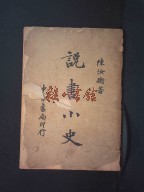 陳汝衡著
說書小史
中華書局印行